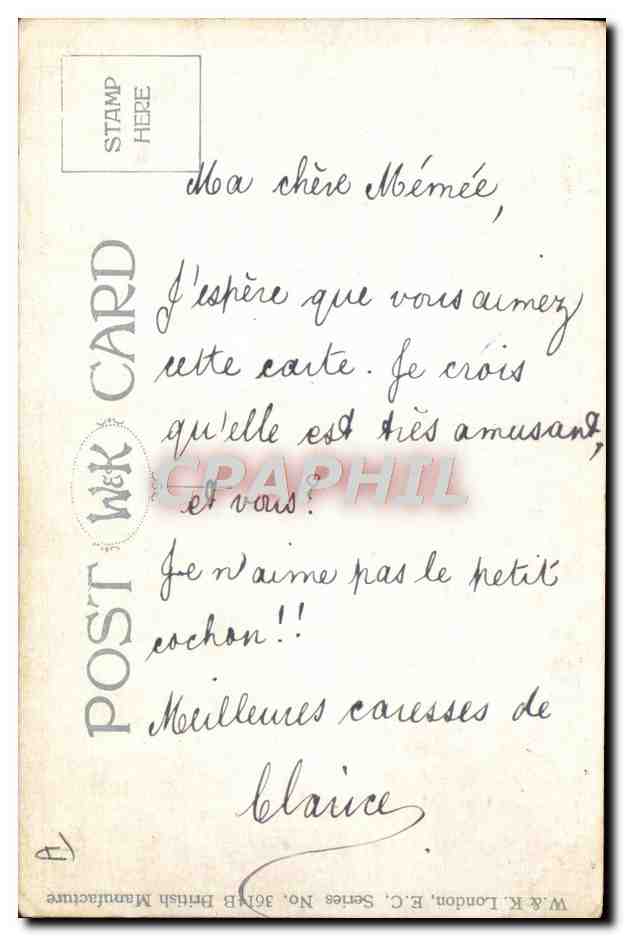 STAMP
HERE
POST W&K CARD
Ma chère Mémée,
J'espère que vous aimez
cette carte. Je crois
qu'elle est très amusant,
et vous?
Je n'aime pas le petit
cochon!!
Meilleures caresses de
Clarice
CPARPHIL
W. & K. London, E.C, Series No. 3614B British Manufacture